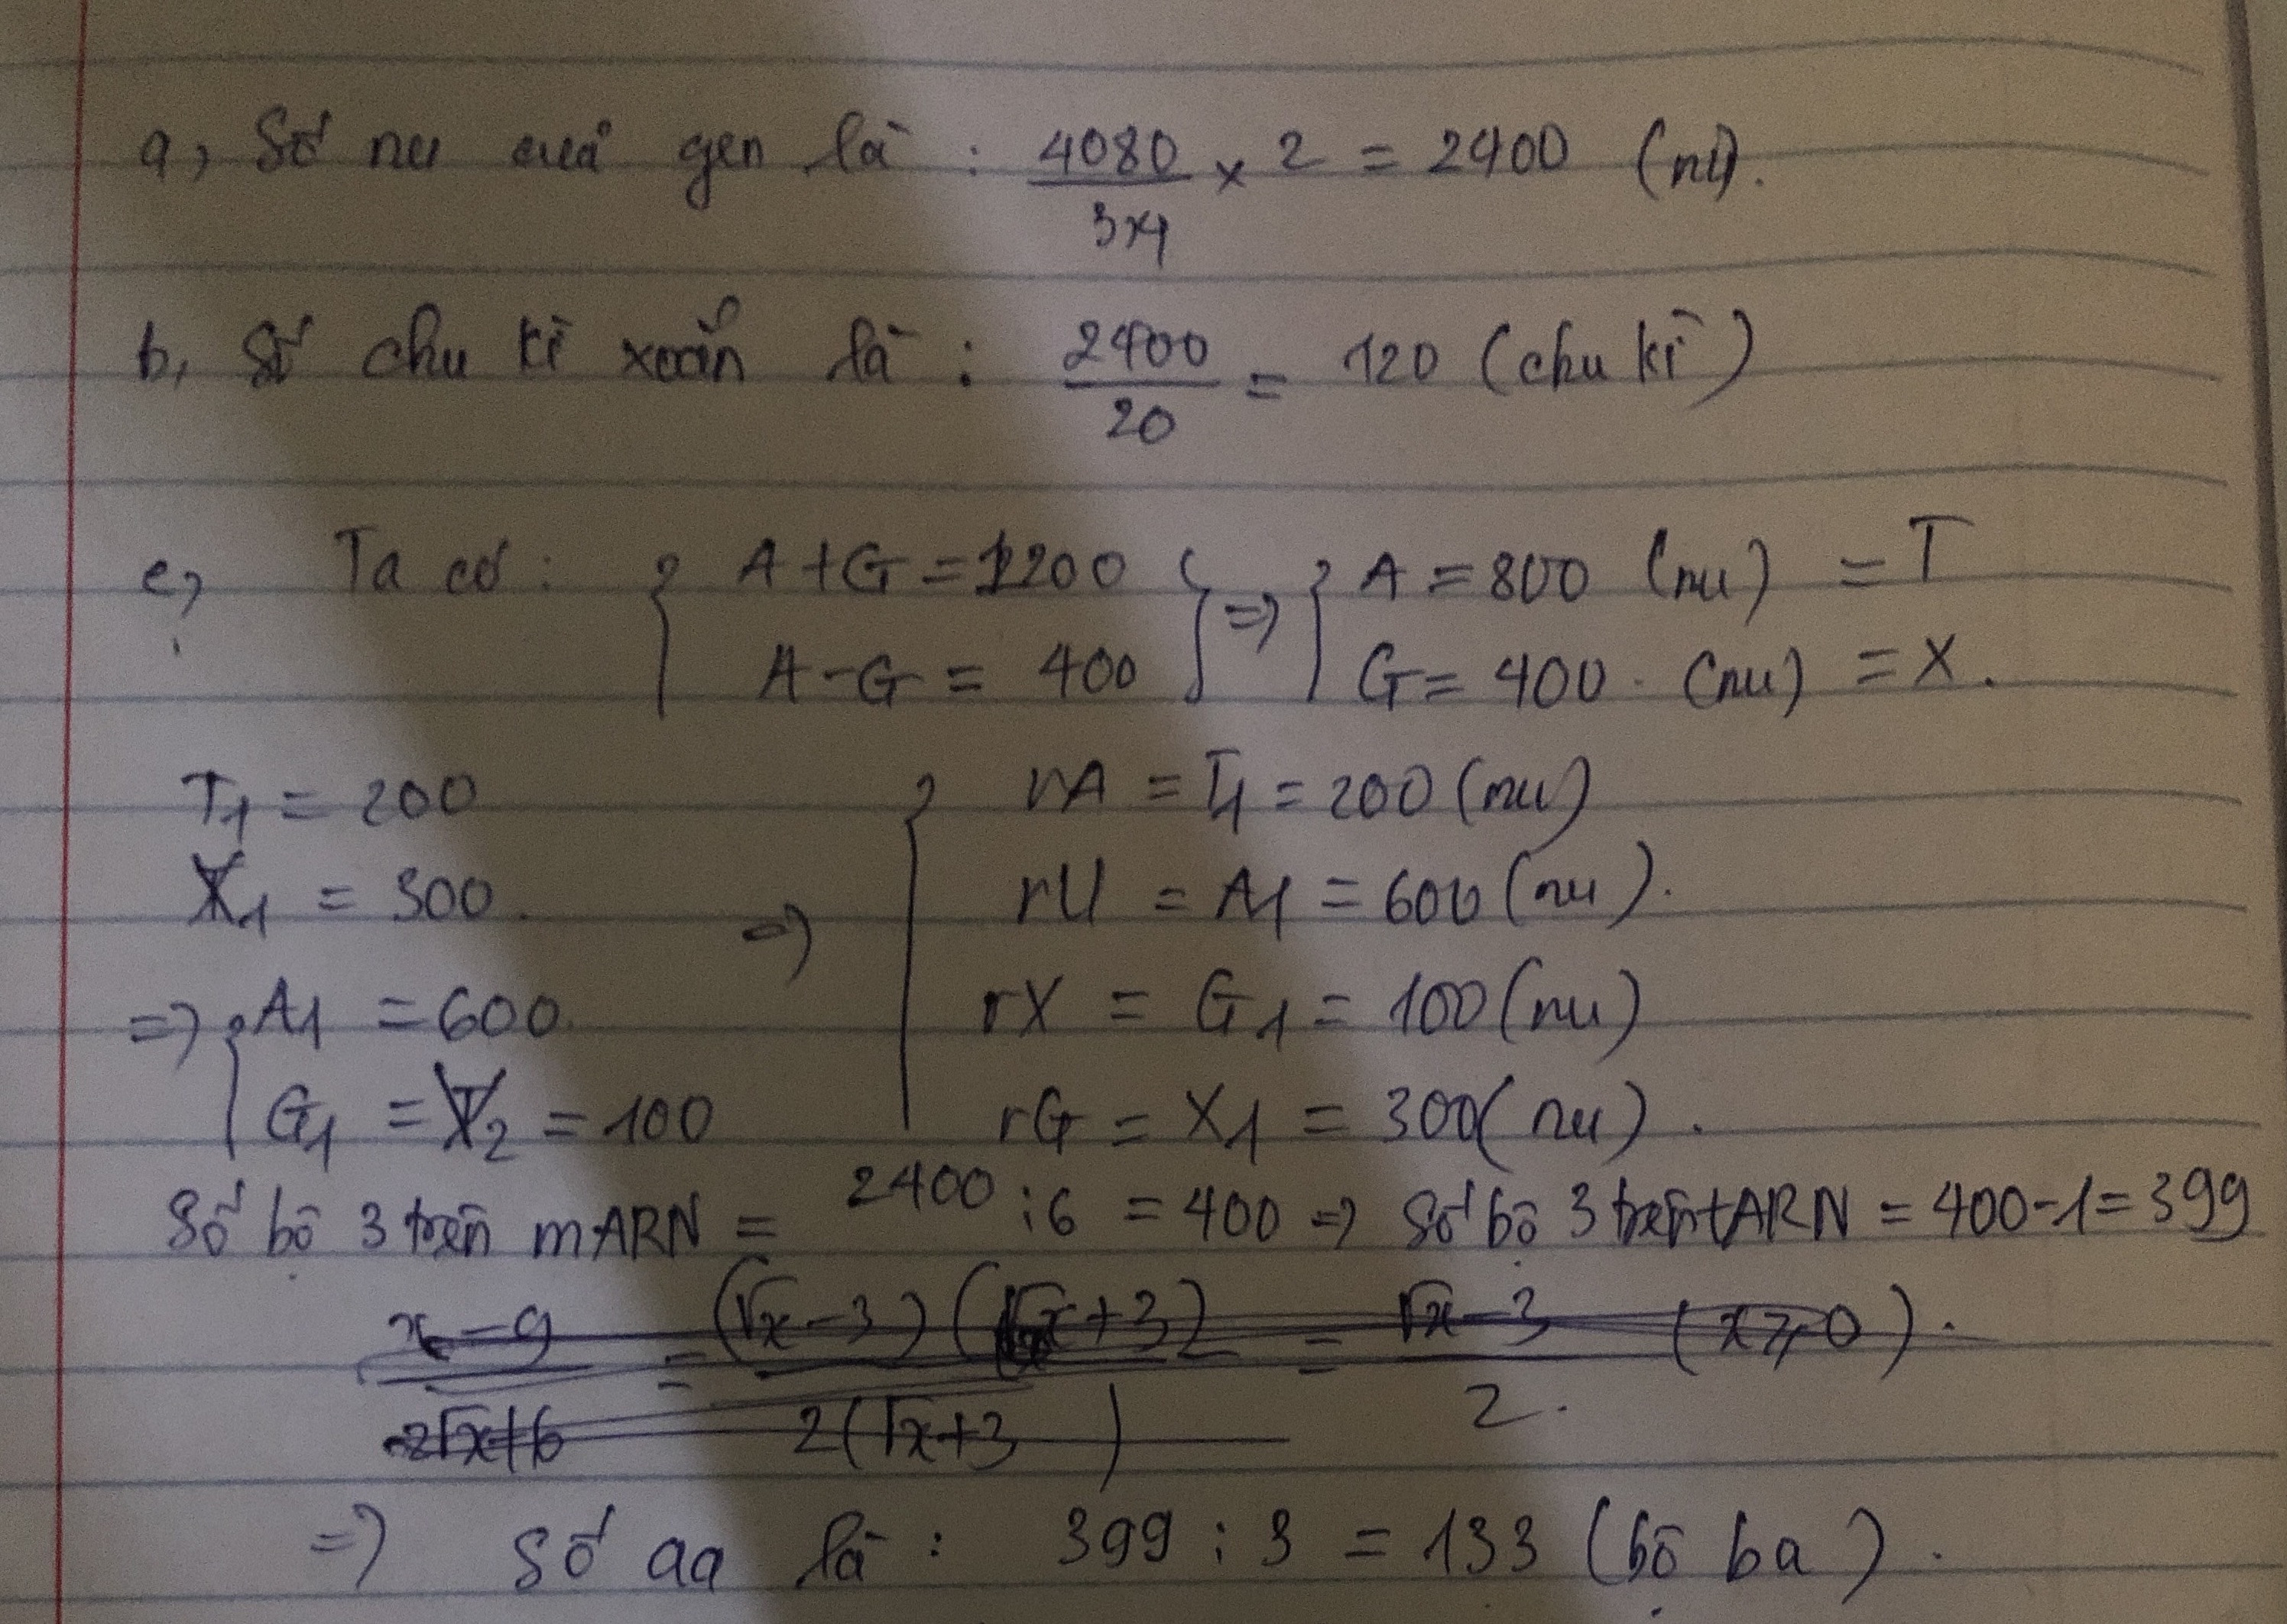 a, Số nu của gen là : 4080/3,4 × 2 = 2400 (nu).
b, Số chu kì xoắn là : 2400/20 = 120 (chu kì)
c, Ta có : { A + G = 1200 } => { A = 800 (nu) = T
A - G = 400 G = 400 . (nu) = X.
T1 = 200 { rA = T1 = 200 (nu)
X1 = 300. => rU = A1 = 600 (nu).
=> { A1 = 600. rX = G1 = 100 (nu)
G1 = X2 = 100 rG = X1 = 300 (nu).
Số bộ 3 trên mARN = 2400 : 6 = 400 => Số bộ 3 trên tARN = 400 - 1 = 399
x - 9/2√x + 6 = (√x - 3)(√x + 3)/2(√x + 3) = √x - 3/2. (x ≥ 0).
=> Số aa là : 399 : 3 = 133 (bộ ba).